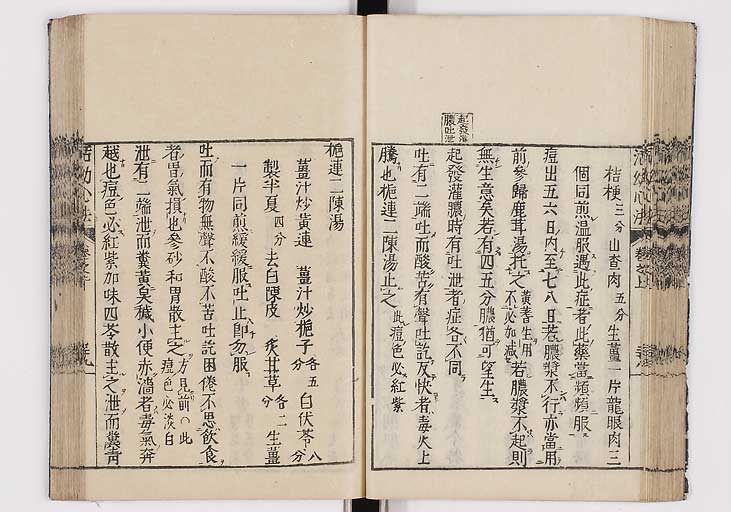 桔梗三分山查肉五分生薑一片龍眼肉三
個同煎溫服遇此症者此藥當頻頻服
痘出五六日內至七八日若膿漿不行亦當用
前參歸鹿茸湯托之黃蓍生用不必加減若膿漿不起則
無生意矣若有四五分膿猶可望生
起發灌膿吐泄
起發灌膿時有吐泄者症各不同
吐有二端吐而酸苦有聲吐訖反快者毒火上
騰也梔連二陳湯止之此痘色必紅紫
梔連二陳湯
薑汁炒黃連 薑汁炒梔子各五分 白伏苓八分
製半夏四分 去白陳皮 炙甘草各二分 生薑
一片同煎緩緩服吐止卽勿服
吐而有物無聲不酸不苦吐訖困倦不思飲食
者胃氣損也參砂和胃散主之方見前○此痘色必淡白
泄有二端泄而糞黃臭穢小便赤濇者毒氣奔
越也痘色必紅紫加味四苓散主之泄而糞靑
活幼心法